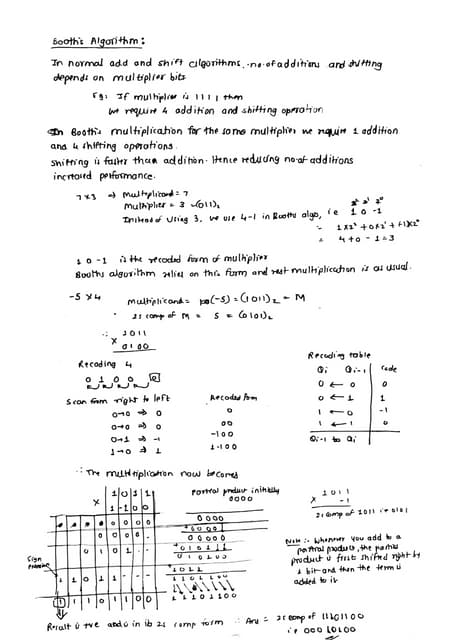 Booth's Algorithm:
In normal add and shift algorithms, no. of additions and shifting
depends on multiplier bits
Eg: If multiplier is 1111 then
we require 4 addition and shifting operation
In Booth's multiplication for the same multiplier we require 1 addition
and 4 shifting operations.
Shifting is faster than addition. Hence reducing no of additions
increased performance.
7x3 ⇒ Multiplicand = 7
Multiplier = 3 - (011)₂
Instead of using 3, we use 4-1 in Booths algo, i.e
2² 2¹ 2⁰
1 0 -1
= 1x2² + 0x2¹ + (-1)x2⁰
= 4+0-1=3
1 0 -1 is the recoded form of multiplier
Booths algorithm relies on this form and rest multiplication is as usual.
-5 x 4 multiplicand = (-5) = (1011)₂ - M
2s comp of M = 5 = (0101)₂
∴ 1011
x 0100
Recoding 4
0 1 0 0 0
Scan from right to left
0→0 ⇒ 0
0→0 ⇒ 0
0→1 ⇒ -1
1→0 ⇒ 1
Recoded form
0
00
-100
1-100
Recoding table
Qi Qi-1 Code
0 ← 0 0
0 ← 1 1
1 ← 0 -1
1 ← 1 0
Qi-1 to Qi
∴ The multiplication now becomes
1 0 1 1
x 1 -1 0 0
0 0 0 0
0 0 0 0 -
0 1 0 1 - -
1 1 0 1 1 - - -
1 1 1 0 1 1 0 0
Sign
Partial product initially
0000
0000
+0000↓
00000
+0101↓↓
010100
+1011
1101100
11101100
1011
x -1
2s comp of 1011 i.e 0101
Note :- Whenever you add to a
partial products, the partial
product is first shifted right by
1 bit and then the term is
added to it
Result is +ve and is in its 2s comp form ∴ Ans = 2s comp of 11101100
i.e 00010100